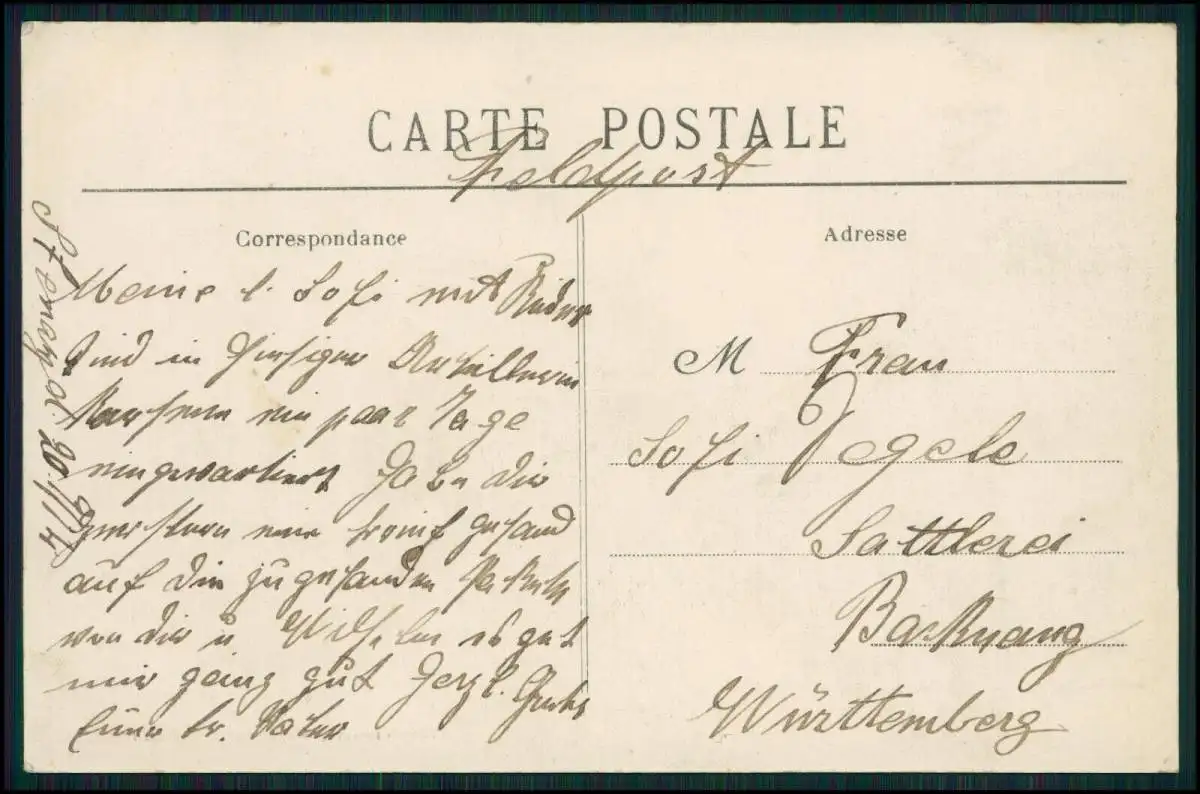 CARTE POSTALE
Feldpost
Correspondance
Meine l. Sofi mit Kinder
Sind in hiesiger Artillerie
Kaserne ein paar Tage
eingewartiert Habe die
eine gesand
auf die zugesanden Pakete
von dir u Wilhelm es get
mir ganz gut Herzl. Grus
Euer tr. Vater
20./11 14
Adresse
M Frau
Sofi Vegele
Sattlerei
Backnang
Württemberg